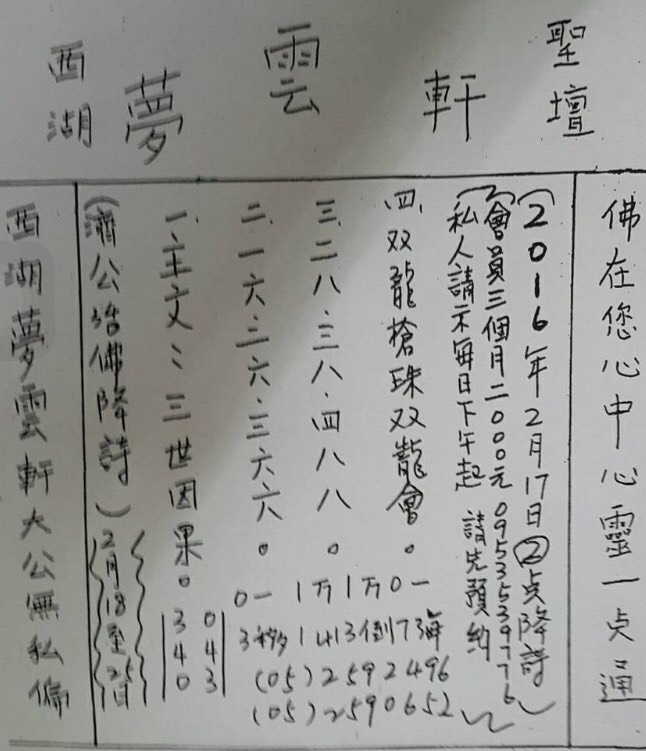 西湖夢雲軒聖壇
佛在您心中心靈一点通
(2016年2月17日②点降詩)
(會員三個月二000元0953539776
私人請示每日下午起 請先預約)
四、双龍槍珠双龍會。
三、二八、三八、四八八。
二、一六、二六、三六六。
一、主文:三世因果。
(濟公活佛降詩)
2月18至25日
西湖夢雲軒大公無私偏
0一 1万1万0一
3秒1413倒73海
(05)2592496
(05)2590652
043
340